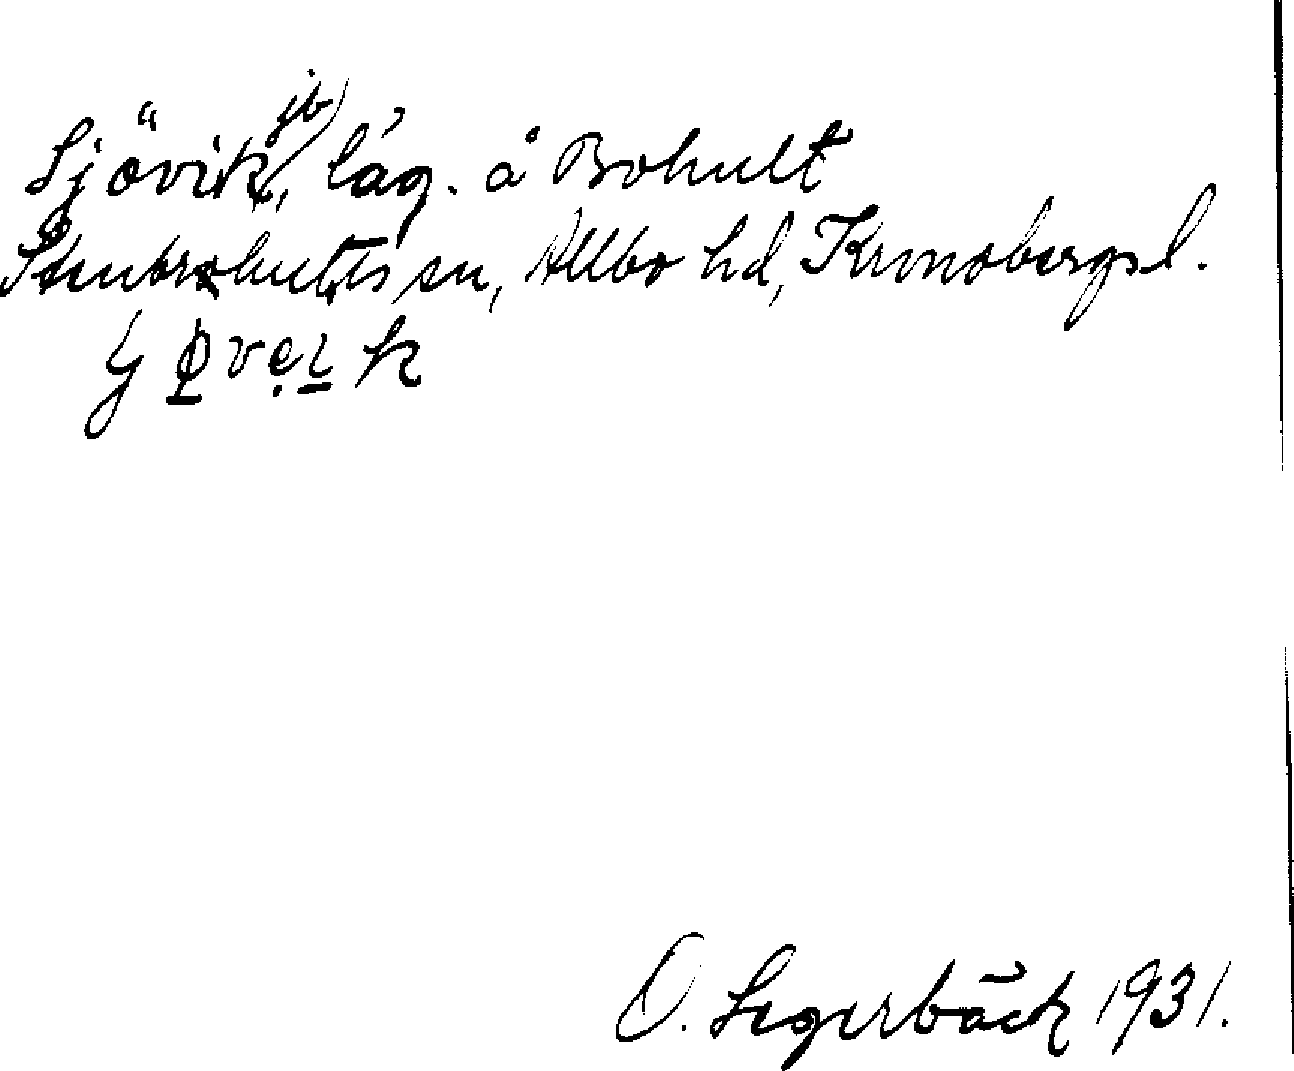 Sjövik, jb, låg. å Bohult
Stenbrohults sn, Allbo hd, Kronobergs l.
O. Segerbäck 1931.